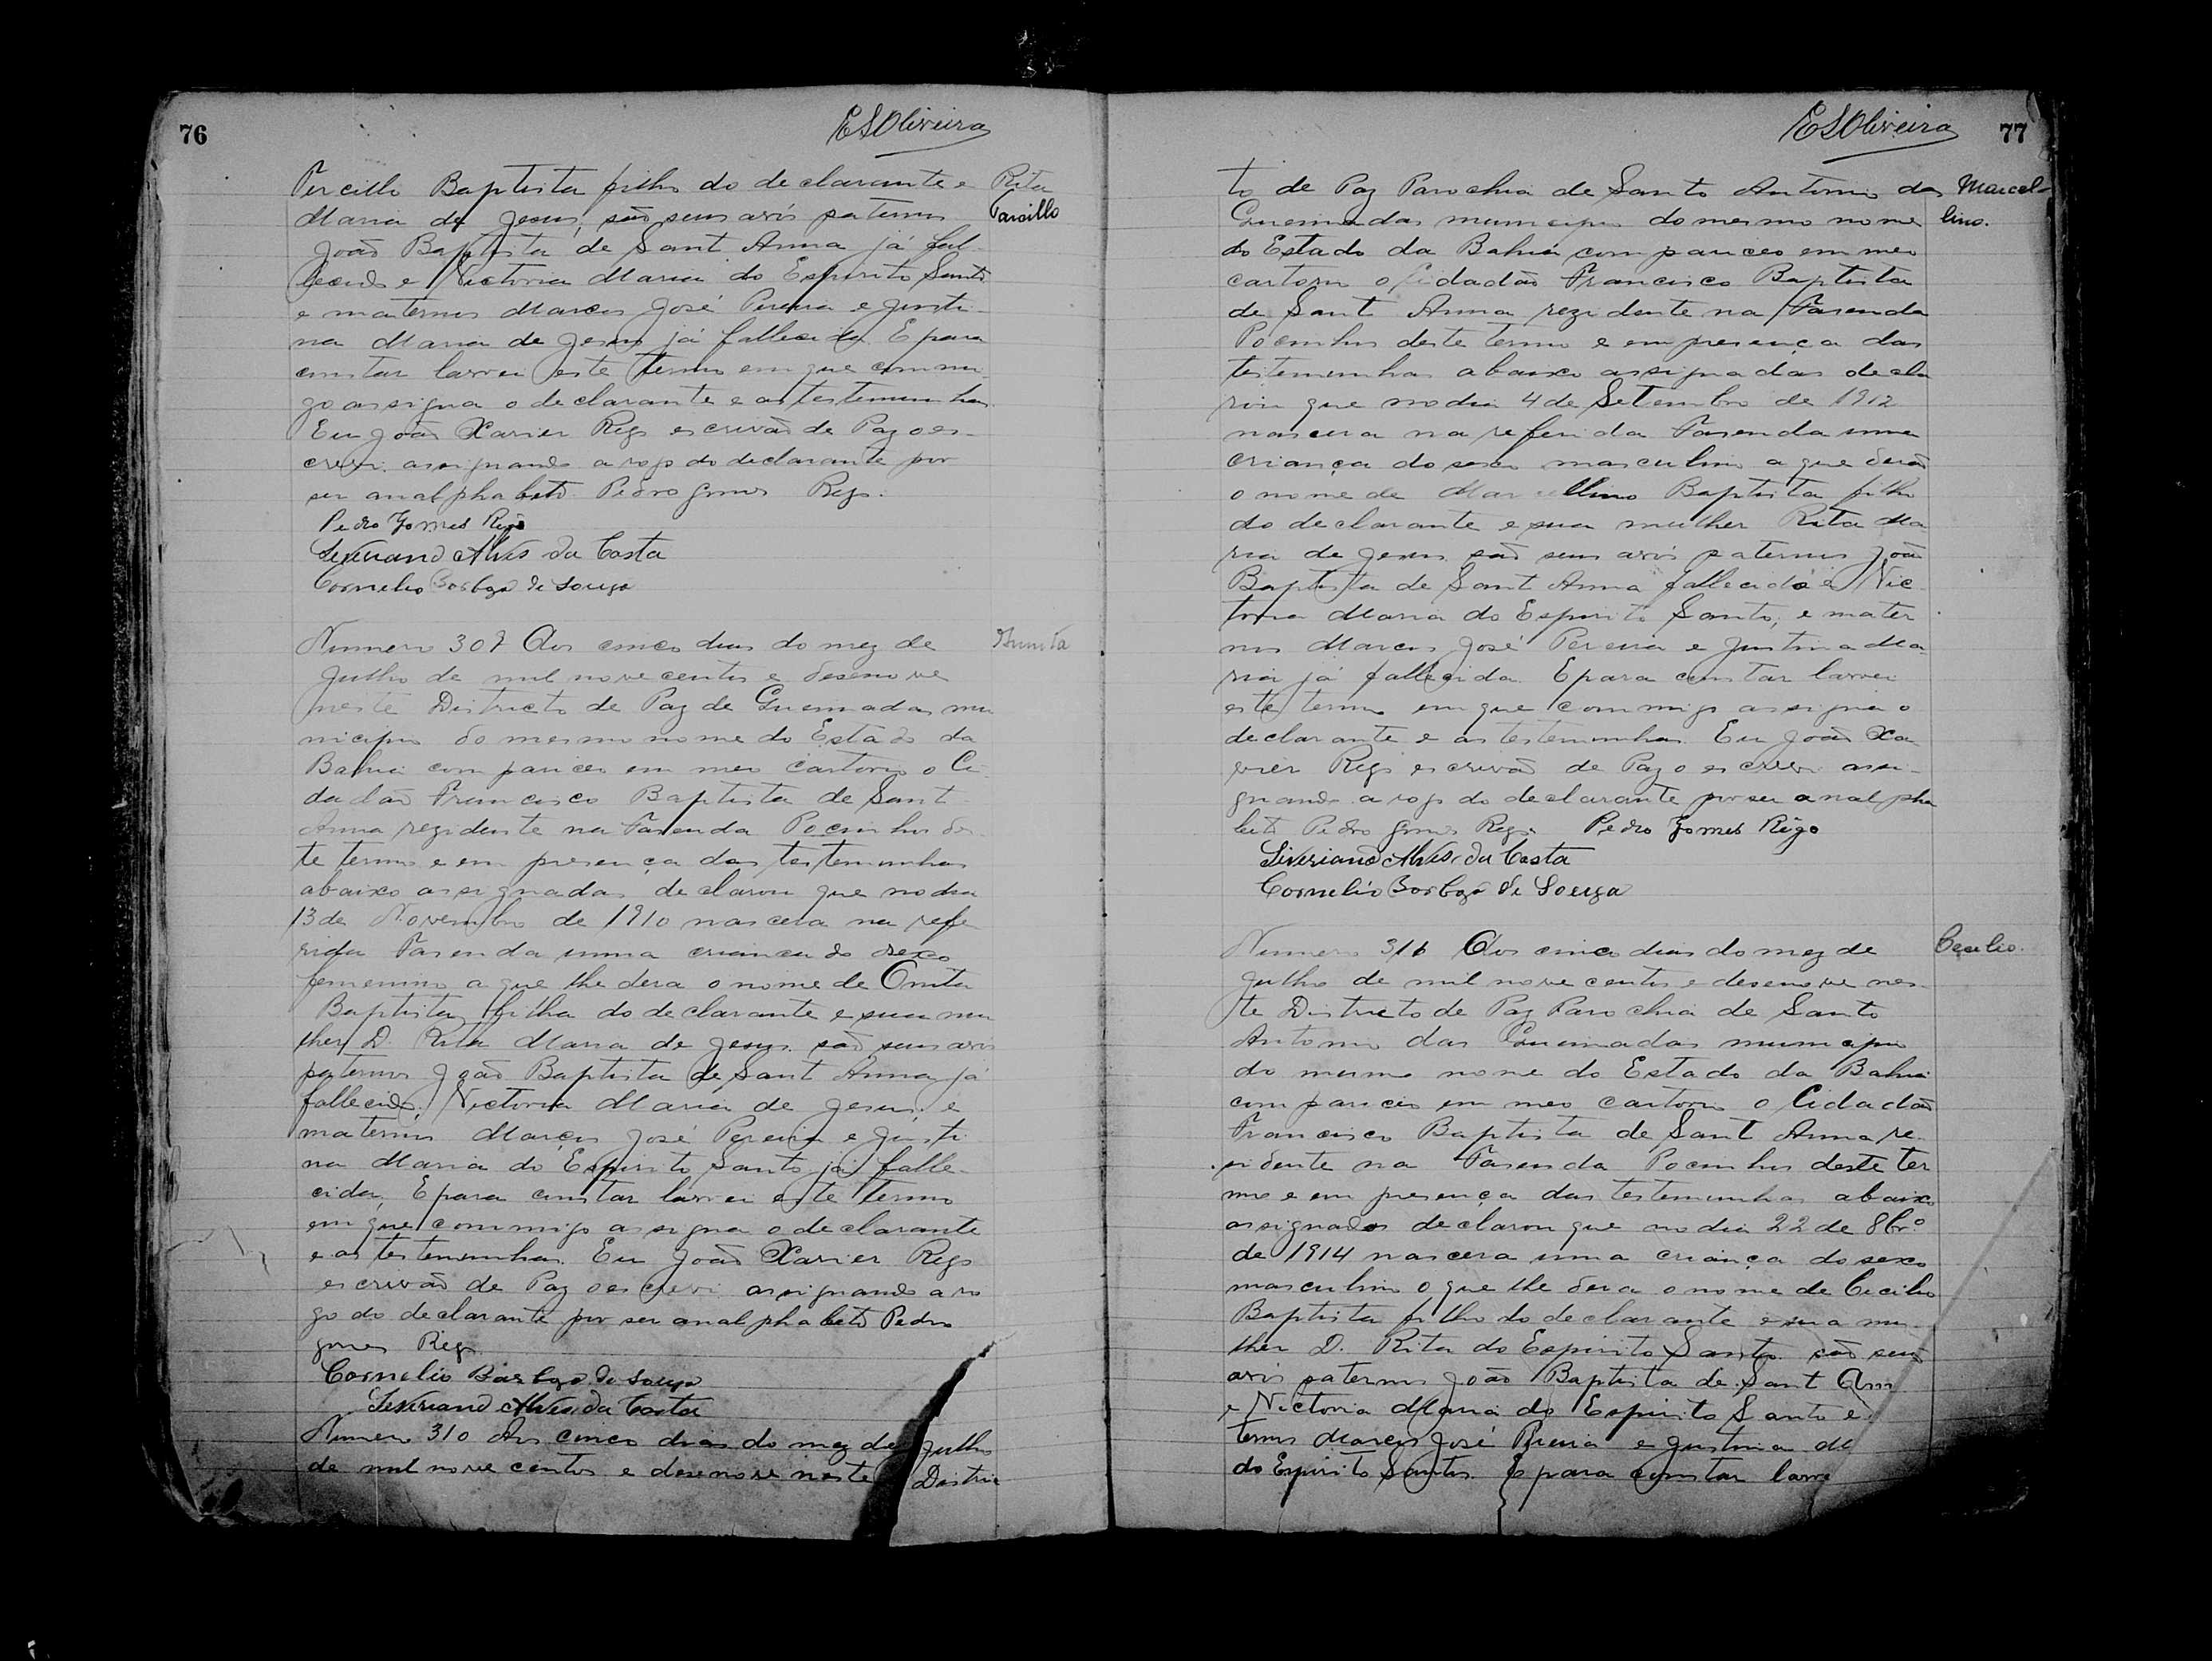 76
ESOliveira
Tercillo Baptista filho do declarante e Rita
Maria de Jesus, são seus avós paternos
Tarcillo
João Baptista de Sant Anna já fal-
lecido e Victoria Maria do Espirito Santo
e maternos Marcos José Pereira e Justi-
na Maria de Jesus já fallecida. E para
constar lavrei este termo em que commi-
go assigna o declarante e as testemunhas.
Eu João Xavier Rego escrivão de Paz o es-
crevi. assignando a rogo do declarante por
ser analphabeto. Pedro Gomes Rego.
Pedro Gomes Rego
Severiano Alves da Costa
Cornelio Barboza de Souza
Numero 307 Aos cinco dias do mez de
Julho de mil nove centos e desenove
neste Districto de Paz de Queimadas mu
nicipio do mesmo nome do Estado da
Bahia compareceo em meo cartorio o Ci-
dadão Francisco Baptista de Sant
Anna rezidente na Fasenda Pocinhos des-
te termo e em presença das testemunhas
abaixo assignadas declarou que no dia
13 de Novembro de 1910 nascera na refe
rida Fasenda uma criança do sexo
femenino a que lhe dera o nome de Onita
Baptista, filha do declarante e sua mu
lher D. Rita Maria de Jesus. são seus avós
paternos João Baptista de Sant Anna já
fallecido. Victoria Maria de Jesus. e
maternos Marcos José Pereira e Justi-
na Maria do Espirito Santo já falle-
cida. E para constar lavrei este termo
em que commigo assigna o declarante
e as testemunhas. Eu João Xavier Rego
escrivão de Paz o escrevi assignando a ro
go do declarante por ser analphabeto Pedro
Gomes Rego.
Cornelio Barboza de Souza
Severiano Alves da Costa
Numero 310 Aos cinco dias do mez de Julho
de mil nove centos e desenove neste Distric
77
ESOliveira
to de Paz Parochia de Santo Antonio das
Marcel-
lino.
Queimadas municipio do mesmo nome
do Estado da Bahia compareceo em meo
cartorio o Cidadão Francisco Baptista
de Sant Anna rezidente na Fasenda
Pocinhos deste termo e em presença das
testemunhas abaixo assignadas decla
rou que no dia 4 de Setembro de 1912
nascera na referida Fasenda uma
criança do sexo masculino a que derão
o nome de Marcellino Baptista filho
do declarante e sua mulher Rita Ma
ria de Jesus são seus avós paternos João
Baptista de Sant Anna fallecido e Vic
toria Maria do Espirito Santo, e mater
nos Marcos José Pereira e Justina Ma-
ria já fallecida. E para constar lavrei
este termo em que commigo assigna o
declarante e as testemunhas. Eu João Xa-
vier Rego escrivão de Paz o escrevi assi-
gnando a rogo do declarante por ser analpha
beto Pedro Gomes Rego. Pedro Gomes Rego
Severiano Alves da Costa
Cornelio Barboza de Souza
Cecilio.
Numero 316 Aos cinco dias do mez de
Julho de mil nove centos e desenove nes-
te Districto de Paz Parochia de Santo
Antonio das Queimadas municipio
do mesmo nome do Estado da Bahia
compareceo em meo cartorio o Cidadão
Francisco Baptista de Sant Anna re-
sidente na Fasenda Pocinhos deste ter
mo e em presença das testemunhas abaixo
assignados declarou que no dia 22 de 8br.º
de 1914 nascera uma criança do sexo
masculino o que lhe dera o nome de Cecilio
Baptista filho do declarante e sua mu-
lher D. Rita do Espirito Santo são seus
avós paternos João Baptista de Sant Ann
e Victoria Maria do Espirito Santo e
ternos Marcos José Pereira e Justina M
do Espirito Santo. E para constar lavre